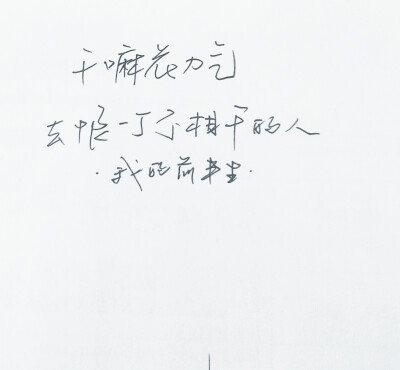 干嘛花力气
去恨一个不相干的人
·我的前半生·